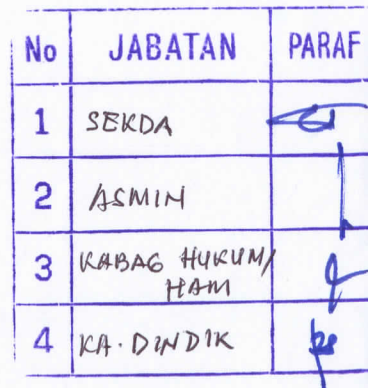 No JABATAN PARAF
1 SEKDA
2 ASMIN
3 KABAG HUKUM/
HAM
4 KA. DINDIK